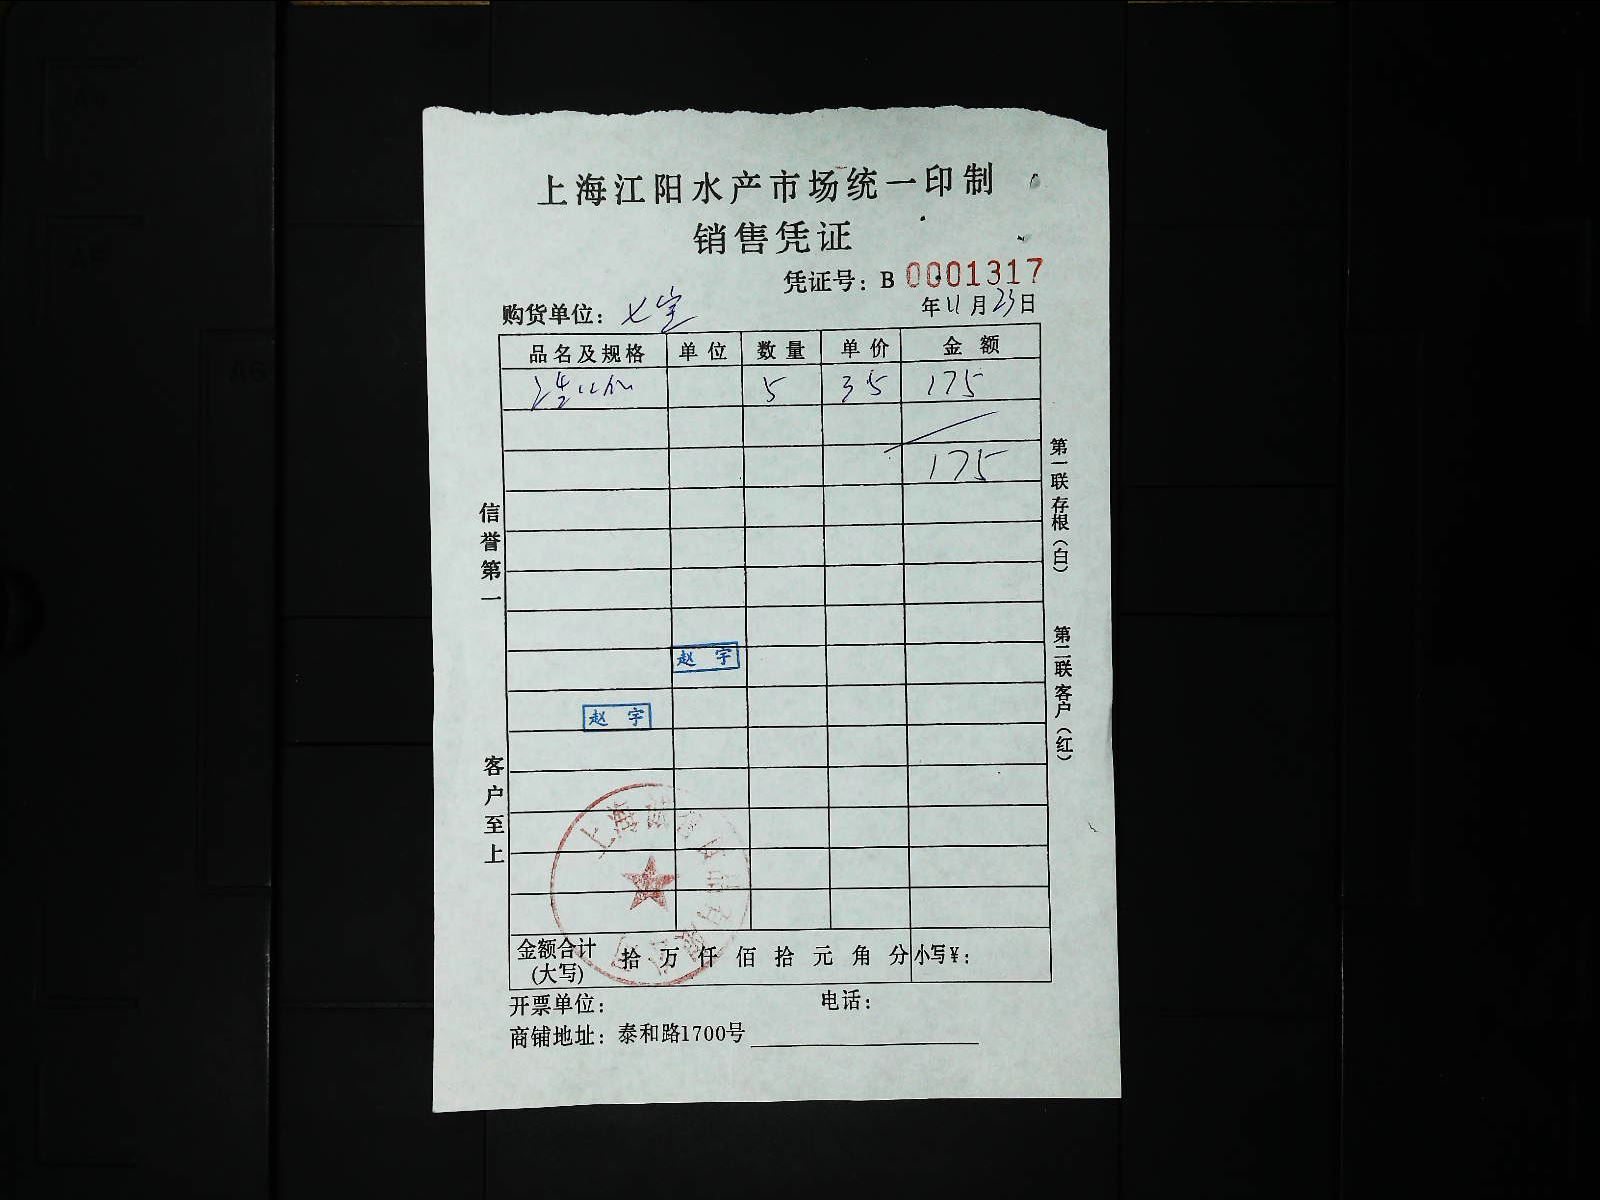 上海江阳水产市场统一印制
销售凭证
凭证号：B 0001317
购货单位：七宝 年11月23日
品名及规格 单位 数量 单价 金额
5 35 175
175
信誉第一
客户至上
第一联存根（白）
第二联客户（红）
赵宇
赵宇
上海
金额合计(大写) 拾 万 仟 佰 拾 元 角 分 小写¥：
开票单位： 电话：
商铺地址：泰和路1700号